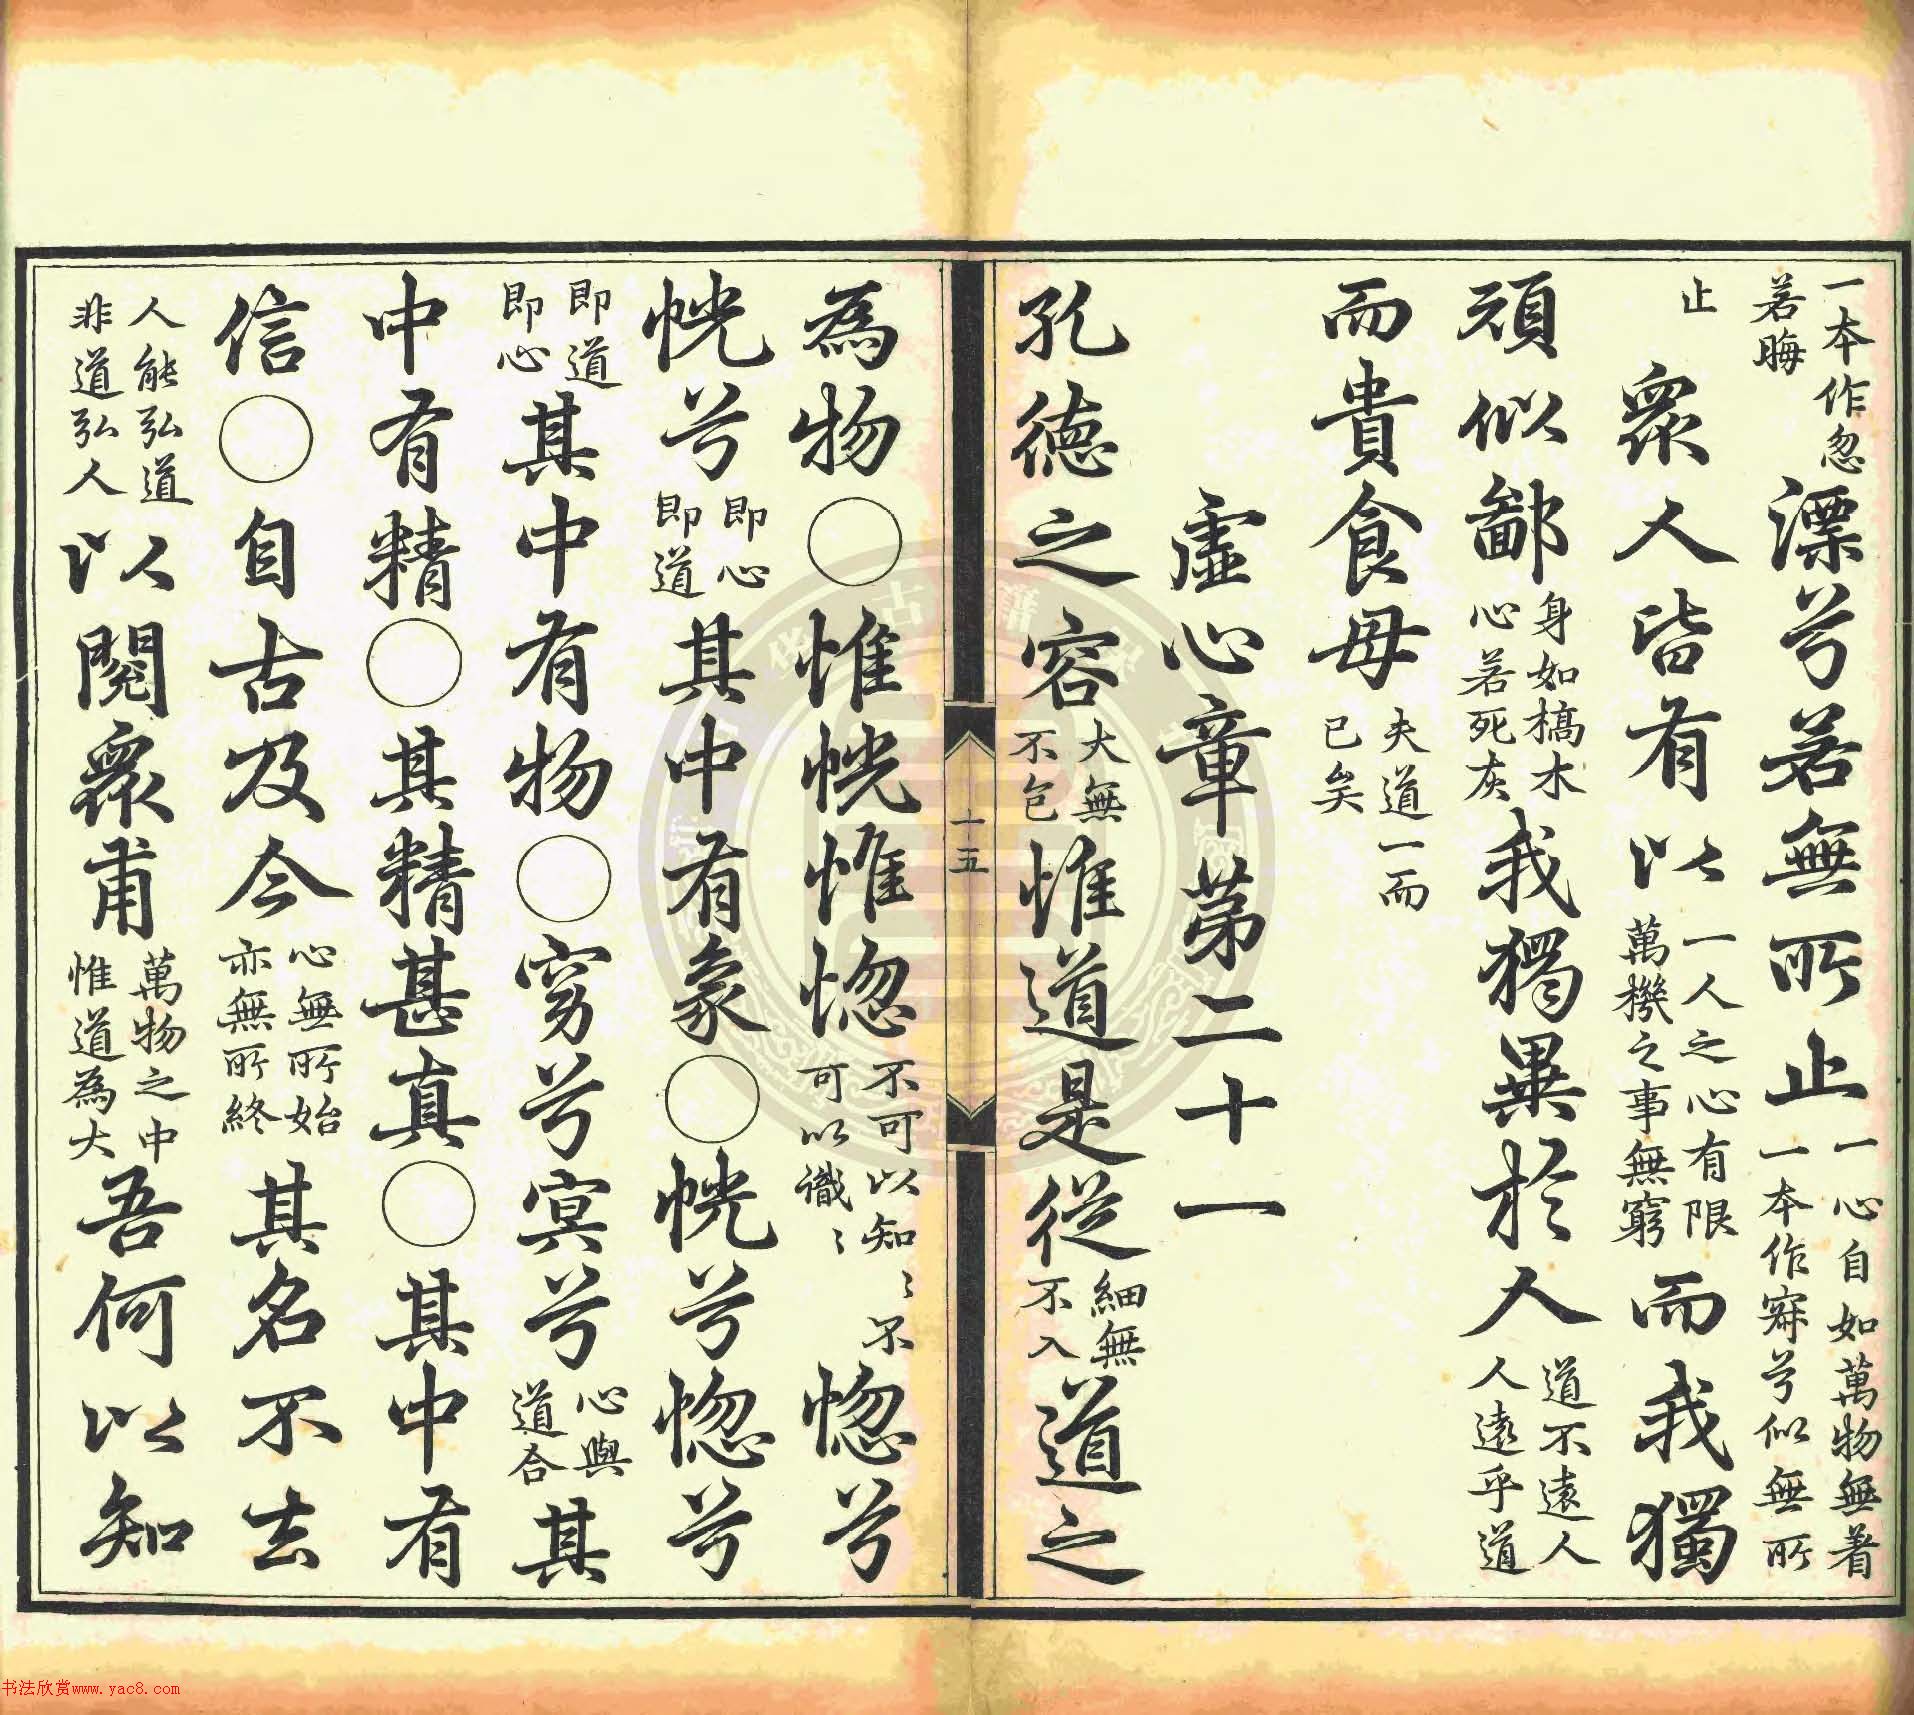 一本作忽若晦漂兮若無所止一心自如萬物無著一本作寂兮似無所
止眾人皆有以一人之心有限萬機之事無窮而我獨
頑似鄙身如槁木心若死灰我獨異於人道不遠人人遠乎道
而貴食母夫道一而已矣
虛心章第二十一
孔德之容大無不包惟道是從細無不入道之
十五
為物○惟恍惟惚不可以知〻不可以識〻惚兮
恍兮即心即道其中有象○恍兮惚兮
即道即心其中有物○窈兮冥兮心與道合其
中有精○其精甚真○其中有
信○自古及今心無所始亦無所終其名不去
人能弘道非道弘人以閱眾甫萬物之中惟道為大吾何以知
书法欣赏www.yac8.com